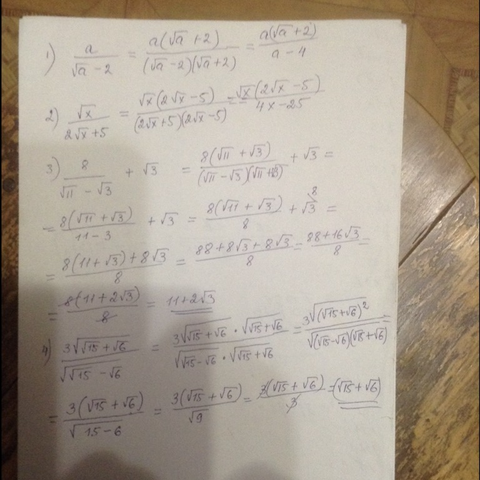 1) a/(√a − 2) = a(√a + 2)/((√a − 2)(√a + 2)) = a(√a + 2)/(a − 4)
2) √x/(2√x + 5) = √x(2√x − 5)/((2√x + 5)(2√x − 5)) = √x(2√x − 5)/(4x − 25)
3) 8/(√11 − √3) + √3 = 8(√11 + √3)/((√11 − √3)(√11 + √3)) + √3 =
= 8(√11 + √3)/(11 − 3) + √3 = 8(√11 + √3)/8 + √3^8 =
= (8(11 + √3) + 8√3)/8 = (88 + 8√3 + 8√3)/8 = (88 + 16√3)/8 =
= 8(11 + 2√3)/8 = 11 + 2√3
4) 3√(√15 + √6)/√(√15 − √6) = (3√(√15 + √6) · √(√15 + √6))/(√(√15 − √6) · √(√15 + √6)) = 3√((√15 + √6)²)/√((√15 − √6)(√15 + √6)) =
= 3(√15 + √6)/√(15 − 6) = 3(√15 + √6)/√9 = 3(√15 + √6)/3 = (√15 + √6)